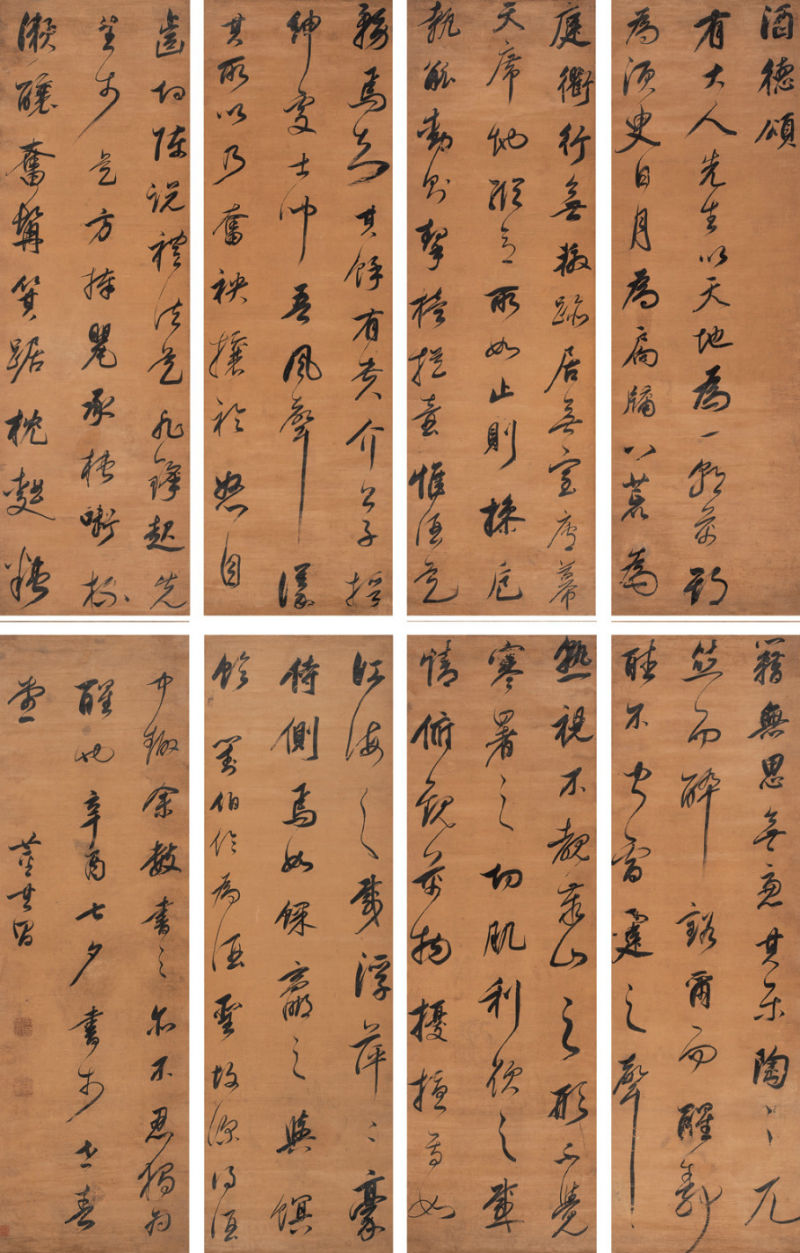 酒德頌
有大人先生以天地為一朝萬期
為須臾日月為扃牖八荒為
庭衢行無轍跡居無室廬幕
天席地縱意所如止則操卮
執觚動則挈榼提壺惟酒是
務焉知其餘有貴介公子搢
紳處士聞吾風聲議
其所以乃奮袂攘衿怒目
齒切陳說禮法是非鋒起先
生於是方捧甖承槽銜杯
漱醪奮髯箕踞枕麴糟
籍無思無慮其樂陶〻兀
然而醉豁爾而醒靜
聽不聞雷霆之聲
熟視不覩泰山之形不覺
寒暑之切肌利欲之感
情俯觀萬物擾擾焉如
江海之載浮萍二豪
侍側焉如蜾蠃之與螟
蛉 劉伯伶為酒聖故深得酒
中趣余數書之亦不忍獨為
醒也辛酉七夕書於世春
堂 董其昌